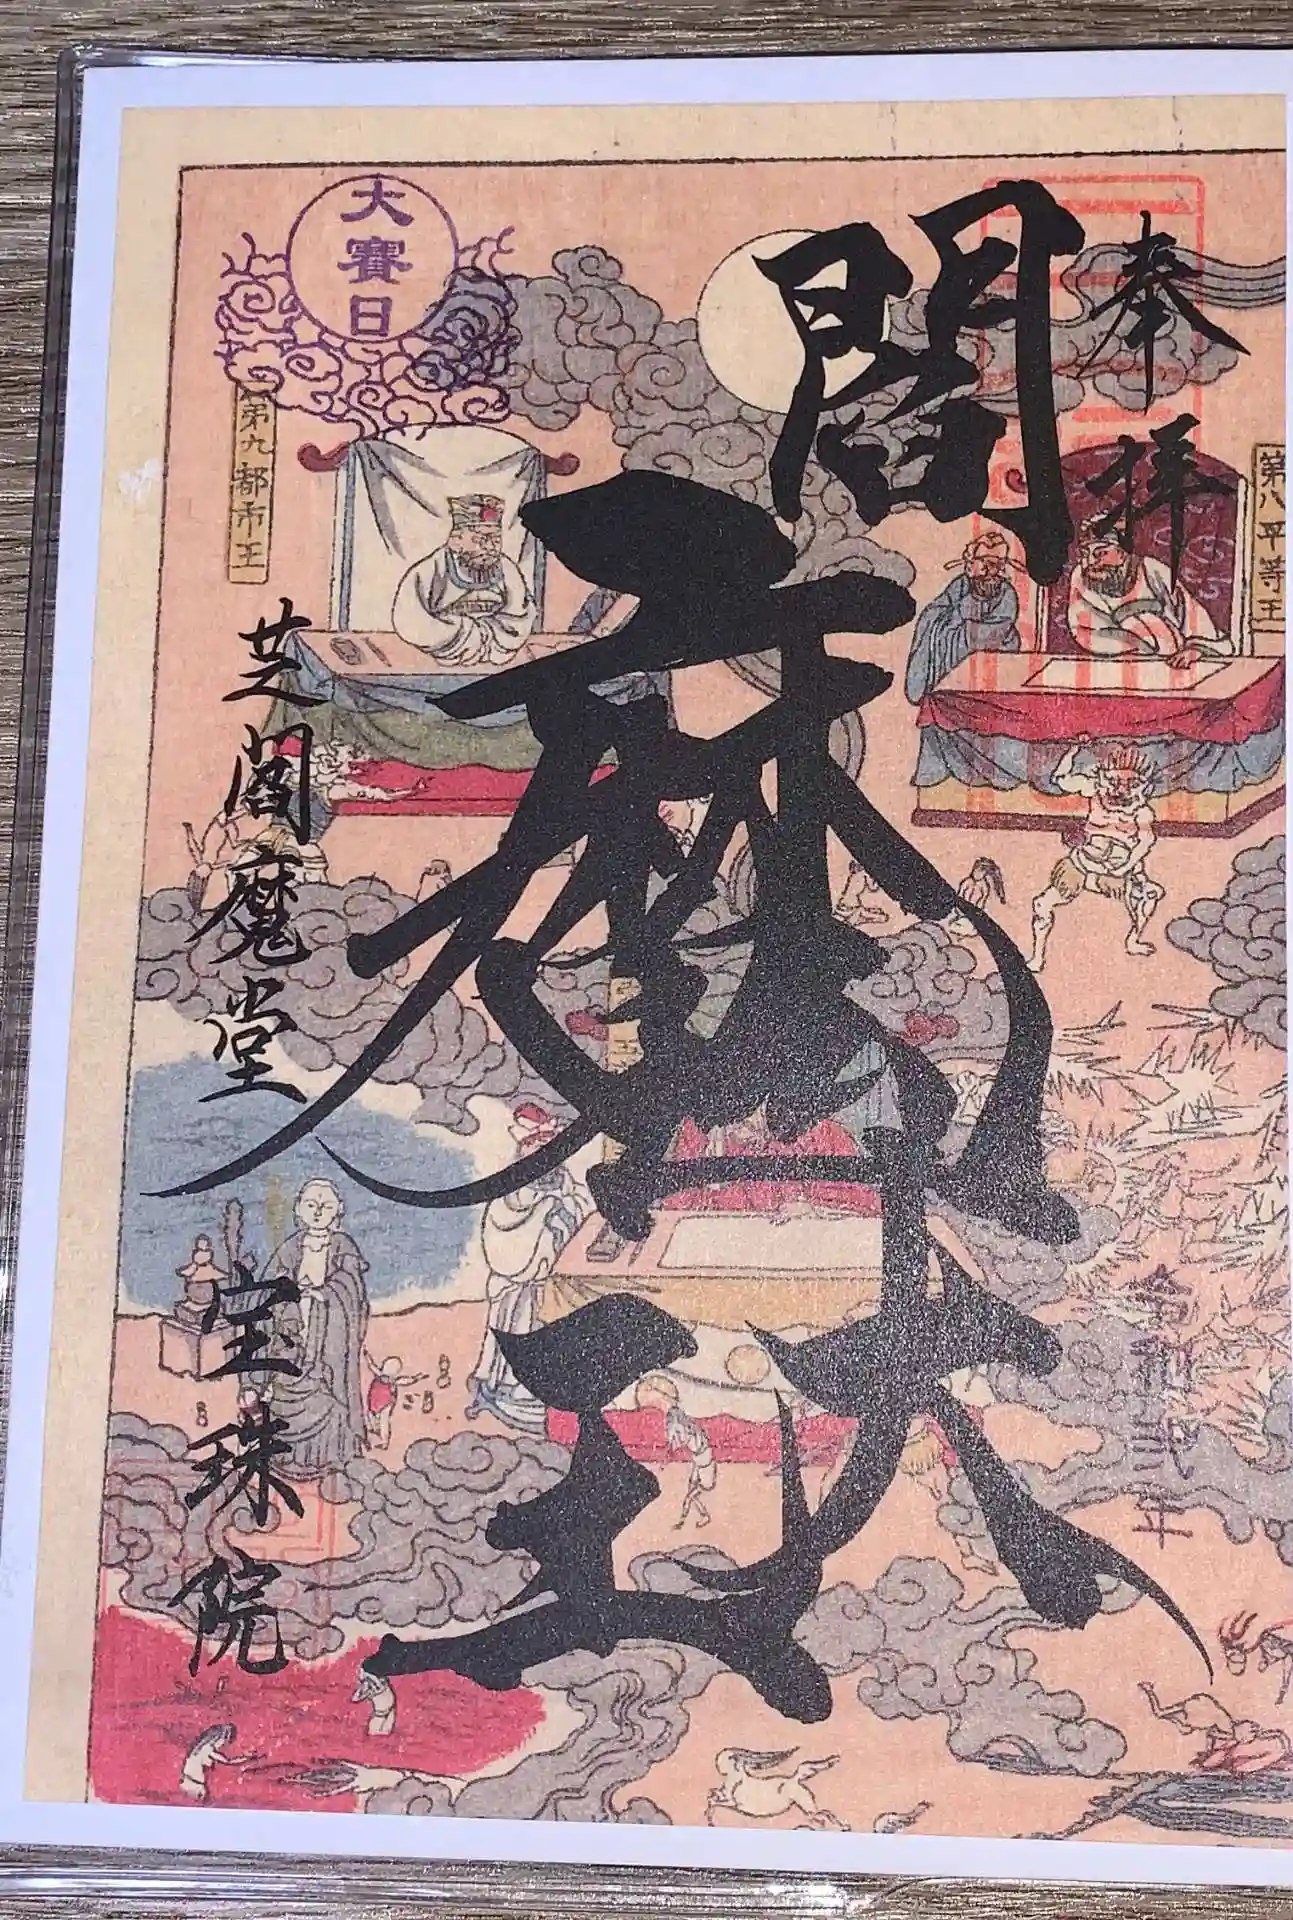 奉拝
令和弐年
閻魔大王
大賽日
芝閻魔堂
宝珠院
第八平等王
第九都市王